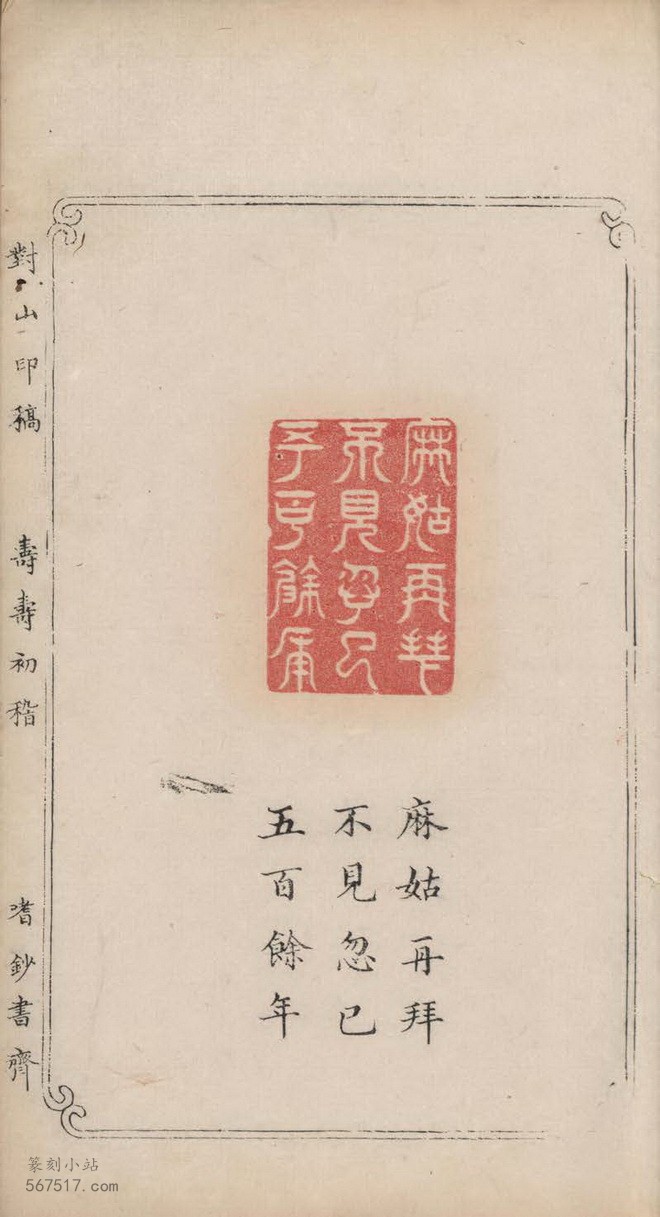 麻姑再拜
不見忽已
五百餘年
麻姑再拜
不見忽已
五百餘年
對山印稿
壽壽初稽
耆鈔書齋
篆刻小站
567517.com